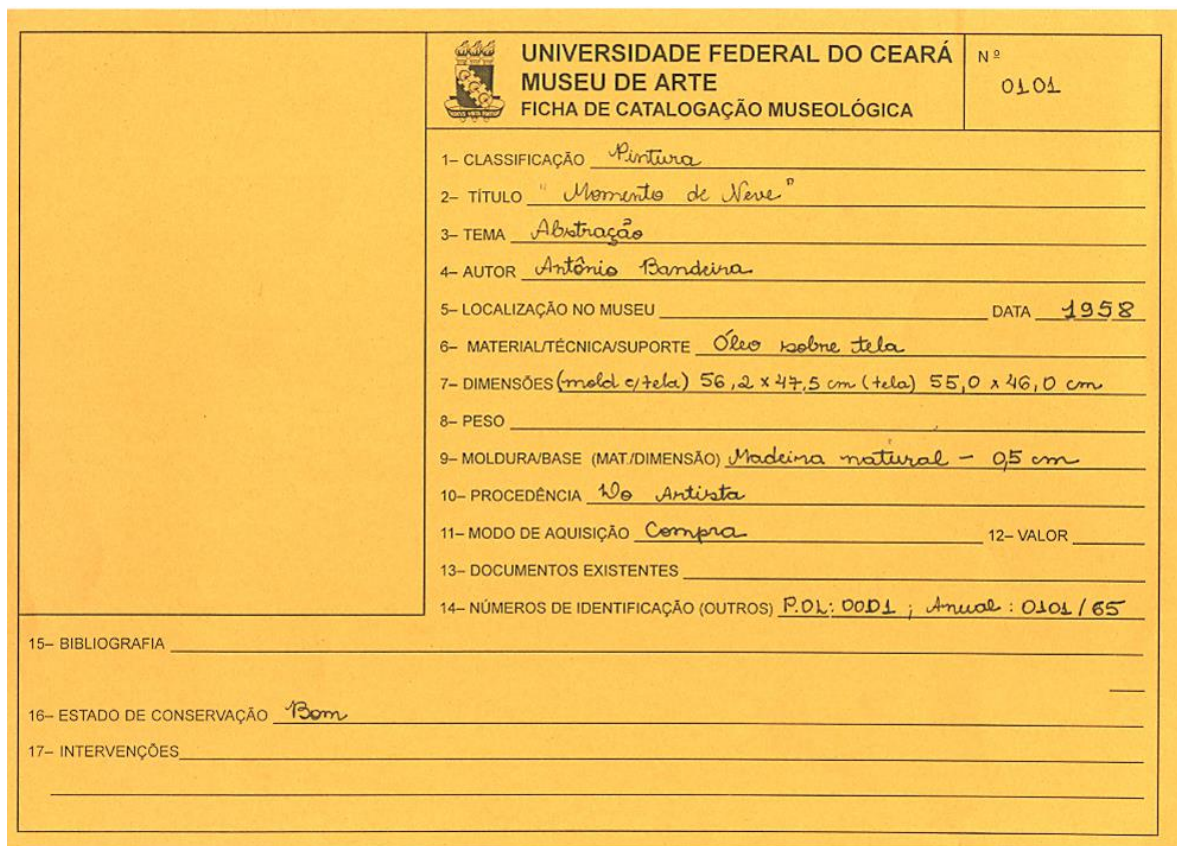 UNIVERSIDADE FEDERAL DO CEARÁ
MUSEU DE ARTE
FICHA DE CATALOGAÇÃO MUSEOLÓGICA
Nº
0101
1– CLASSIFICAÇÃO Pintura
2– TÍTULO "Momento de Neve"
3– TEMA Abstração
4– AUTOR Antônio Bandeira
5– LOCALIZAÇÃO NO MUSEU DATA 1958
6– MATERIAL/TÉCNICA/SUPORTE Óleo sobre tela
7– DIMENSÕES (mold c/tela) 56,2 x 47,5 cm (tela) 55,0 x 46,0 cm
8– PESO
9– MOLDURA/BASE (MAT./DIMENSÃO) Madeira natural – 0,5 cm
10– PROCEDÊNCIA Do Artista
11– MODO DE AQUISIÇÃO Compra 12– VALOR
13– DOCUMENTOS EXISTENTES
14– NÚMEROS DE IDENTIFICAÇÃO (OUTROS) P.OL: 0001 ; Anual : 0101 / 65
15– BIBLIOGRAFIA
16– ESTADO DE CONSERVAÇÃO Bom
17– INTERVENÇÕES